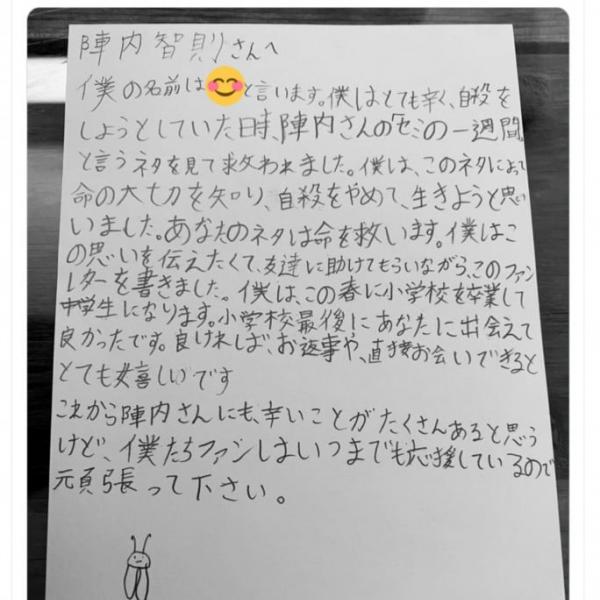 陣内智則さんへ
僕の名前は😊と言います。僕はとても辛く、自殺を
しようとしていた時、陣内さんの「セミの一週間」
と言うネタを見て救われました。僕は、このネタによって
命の大切を知り、自殺をやめて、生きようと思い
いました。あなたのネタは命を救います。僕はこ
の思いを伝えたくて、友達に助けてもらいながら、このファン
レターを書きました。僕は、この春に小学校を卒業して
中学生になります。小学校最後にあなたに出会えて
良かったです。良ければ、お返事や、直接お会いできると
とても嬉しいです
これから陣内さんにも、辛いことがたくさんあると思う
けど、僕たちファンはいつまでも応援しているので
頑張って下さい。